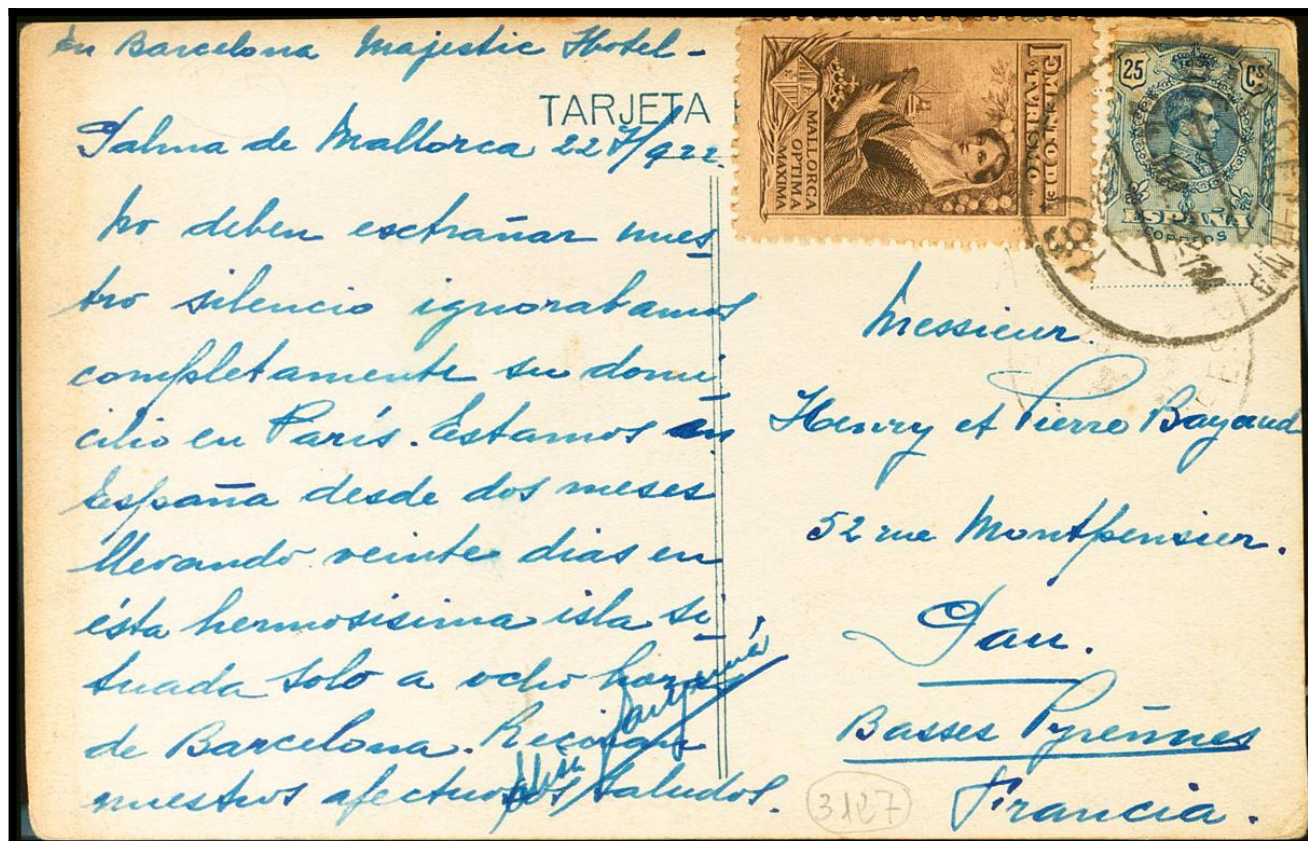 En Barcelona Majestic Hotel -
TARJETA
Palma de Mallorca 22 7/922
No deben esctrañar nues
tro silencio ignorabamos
completamente su domi
cilio en París. Estamos en
España desde dos meses
llevando veinte dias en
ésta hermosisima isla si
tuada solo a ocho horas
de Barcelona. Reciban
nuestros afectuosos saludos.
FOMENTO DE
TVRISMO
MALLORCA
OPTIMA
MAXIMA
25 Cs
ESPAÑA
CORREOS
Messieur.
Henry et Pierre Bayaud
52 rue Montpensier.
Pau.
Basses Pyreñnes
Francia.
3127